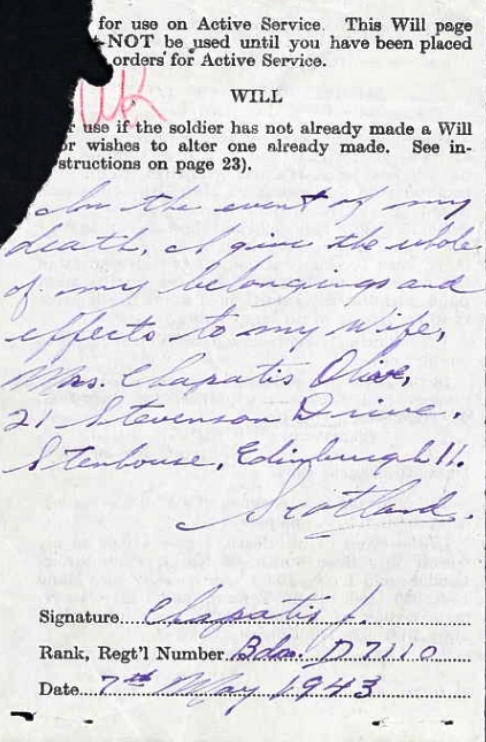 for use on Active Service. This Will page
NOT be used until you have been placed
orders for Active Service.
UK
WILL
r use if the soldier has not already made a Will
or wishes to alter one already made. See in-
structions on page 23).
In the event of my
death, I give the whole
of my belongings and
effects to my wife,
Mrs. Chapatis Olive,
21 Stevenson Drive.
Stenhouse, Edinburgh 11.
Scotland.
Signature Chapatis J.
Rank, Regt'l Number Bdr. D7110
Date 7th May 1943